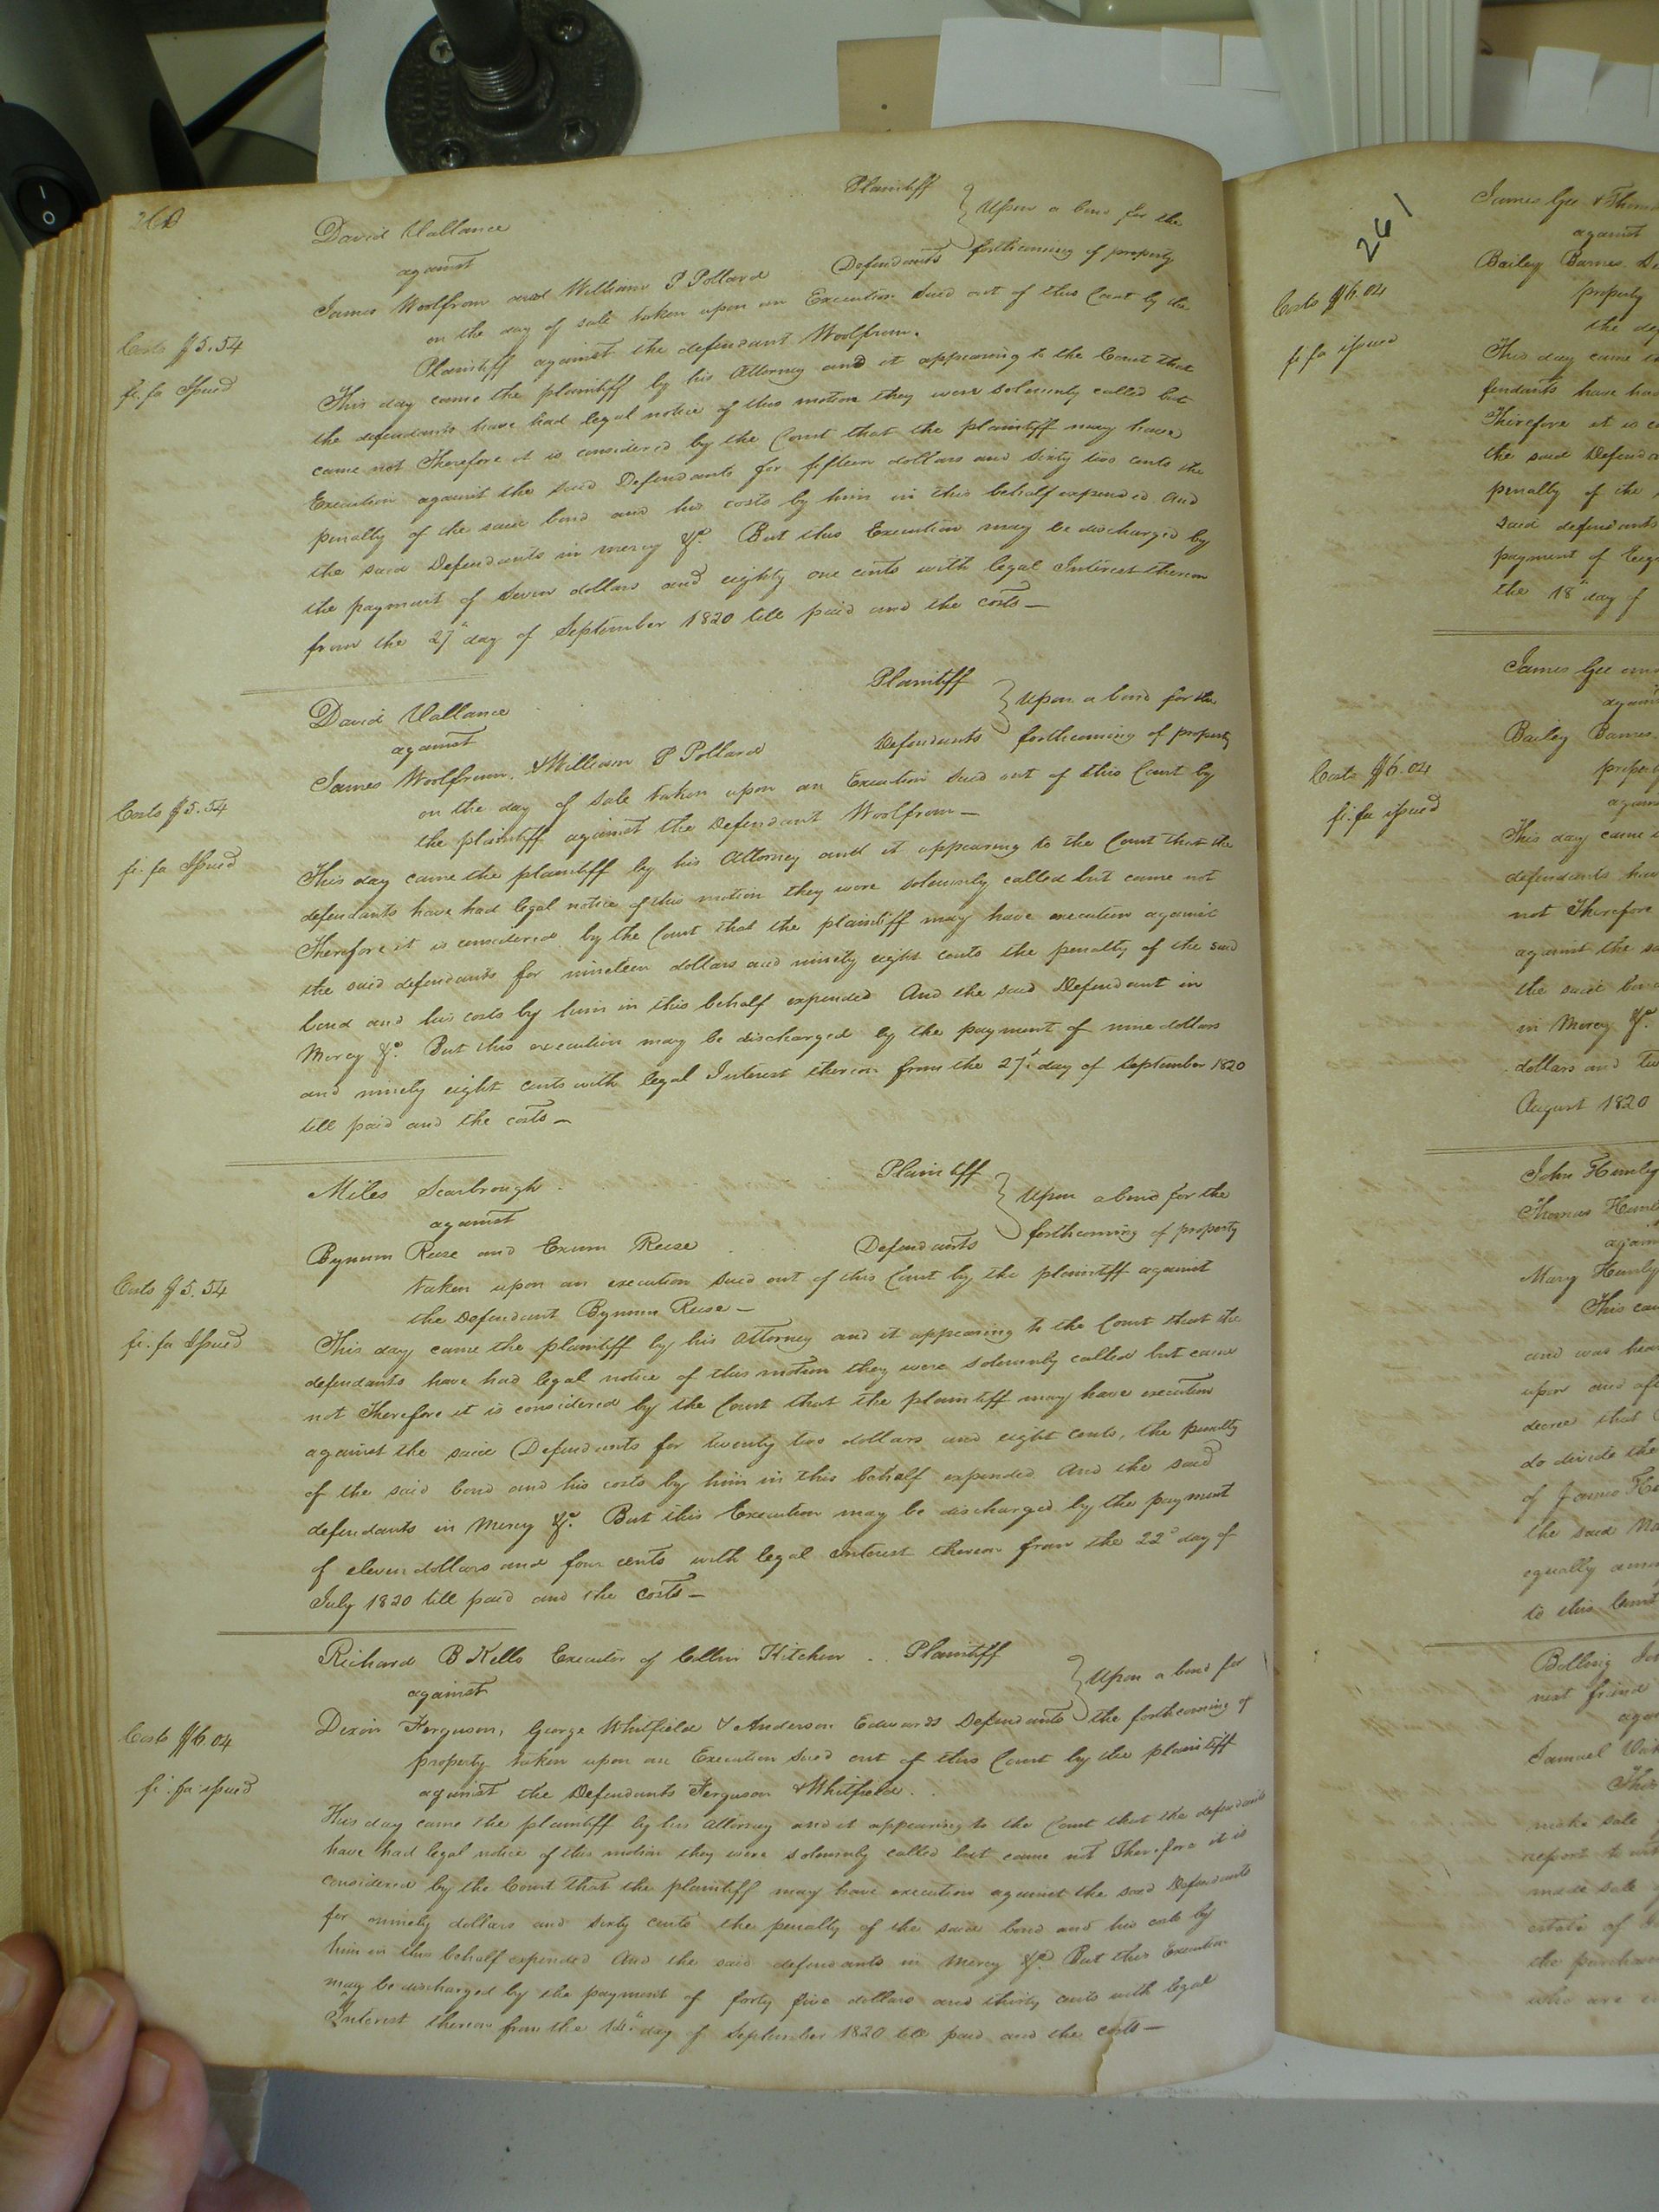 260
David Vallance Plaintiff
against } Upon a bond for the
James Woolfrom and William P Pollard Defendants forthcoming of property
on the day of sale taken upon an Execution sued out of this Court by the
Plaintiff against the defendant Woolfrom.
Costs $5.54
fi. fa Issued
This day came the plaintiff by his Attorney and it appearing to the Court that
the defendants have had legal notice of this motion they were solemnly called but
came not Therefore it is considered by the Court that the plaintiff may have
Execution against the said Defendants for fifteen dollars and sixty two cents the
penalty of the said bond and his costs by him in this behalf expended and
the said Defendants in mercy &c. But this Execution may be discharged by
the payment of seven dollars and eighty one cents with legal Interest thereon
from the 27th day of September 1820 till paid and the costs —
David Vallance Plaintiff
against } Upon a bond for the
James Woolfrom. & William P Pollard Defendants forthcoming of property
on the day of sale taken upon an Execution sued out of this Court by
the plaintiff against the Defendant Woolfrom —
Costs $5.54
fi. fa Issued
This day came the plaintiff by his Attorney and it appearing to the Court that the
defendants have had legal notice of this motion they were solemnly called but came not
Therefore it is considered by the Court that the plaintiff may have execution against
the said defendants for nineteen dollars and ninety eight cents the penalty of the said
bond and his costs by him in this behalf expended And the said Defendant in
Mercy &c. But this execution may be discharged by the payment of nine dollars
and ninety eight cents with legal Interest thereon from the 27th day of September 1820
till paid and the costs —
Miles Scarbrough Plaintiff
against } Upon a bond for the
Bynum Reese and Exum Reese Defendants forthcoming of property
taken upon an execution sued out of this Court by the plaintiff against
the Defendant Bynum Reese —
Costs $5.54
fi. fa Issued
This day came the plaintiff by his Attorney and it appearing to the Court that the
defendants have had legal notice of this motion they were solemnly called but came
not Therefore it is considered by the Court that the plaintiff may have execution
against the said Defendants for twenty two dollars and eight cents, the penalty
of the said bond and his costs by him in this behalf expended And the said
defendants in Mercy &c. But this Execution may be discharged by the payment
of eleven dollars and four cents with legal interest thereon from the 22d day of
July 1820 till paid and the costs —
Richard B Kells Executor of Collin Kitchen .. Plaintiff
against } Upon a bond for
Dixon Ferguson, George Whitfield & Anderson Edwards Defendants the forthcoming of
property taken upon an Execution sued out of this Court by the plaintiff
against the Defendants Ferguson & Whitfield.
Costs $6.04
fi. fa issued
This day came the plaintiff by his attorney and it appearing to the Court that the defendants
have had legal notice of this motion they were solemnly called but came not Therefore it is
considered by the Court that the plaintiff may have execution against the said Defendants
for ninety dollars and sixty cents the penalty of the said bond and his costs by
him in this behalf expended And the said defendants in Mercy &c. But this Execution
may be discharged by the payment of forty five dollars and thirty cents with legal
Interest thereon from the day of September 1820 till paid and the costs —
261
James Gee & Thom
against
Bailey Barnes.
property
the de
Costs $6.04
fi fa issued
This day came
fendants have had
Therefore it is c
the said Defenda
penalty of the
said defendants
payment of Eig
the 18th day of
James Gee an
again
Bailey Barnes.
proper
again
Costs $6.04
fi. fa issued
This day came
defendants hav
not Therefore
against the sa
the said bon
in Mercy &c.
dollars and tw
August 1820
John
Thomas
again
Mary
This cau
and was hear
upon and aft
decree that
do divide the
of James
the said Ma
equally amo
to this Court
next friend
again
Samuel
This
make sale
report to
made sale
estate of
the purchas
who are